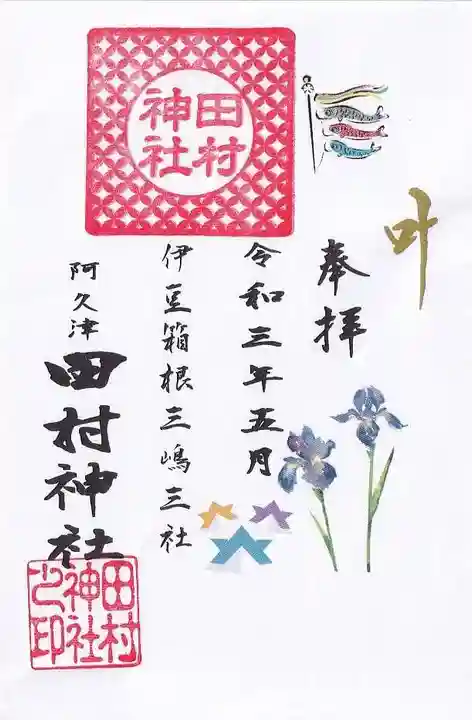 叶
奉拝
令和三年五月
伊豆箱根三嶋三社
阿久津
田村神社
田村
神社
田村
神社
之印